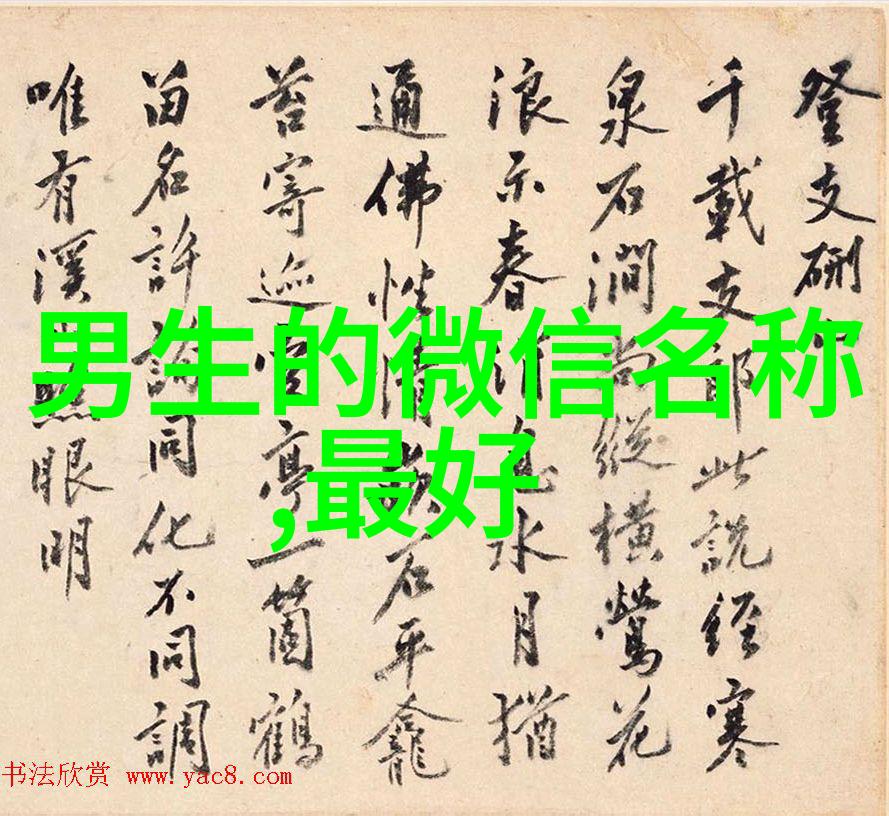 登支硎
千載支郎此說經寒
泉石澗尚縱橫鶯花
浪示春息水月猶
通佛性石平龕
苔寄空亭一箇鶴
留名許詢同化不同調
唯有溪照眼明
男生的微信名称
,最好
书法欣赏 www.yac8.com